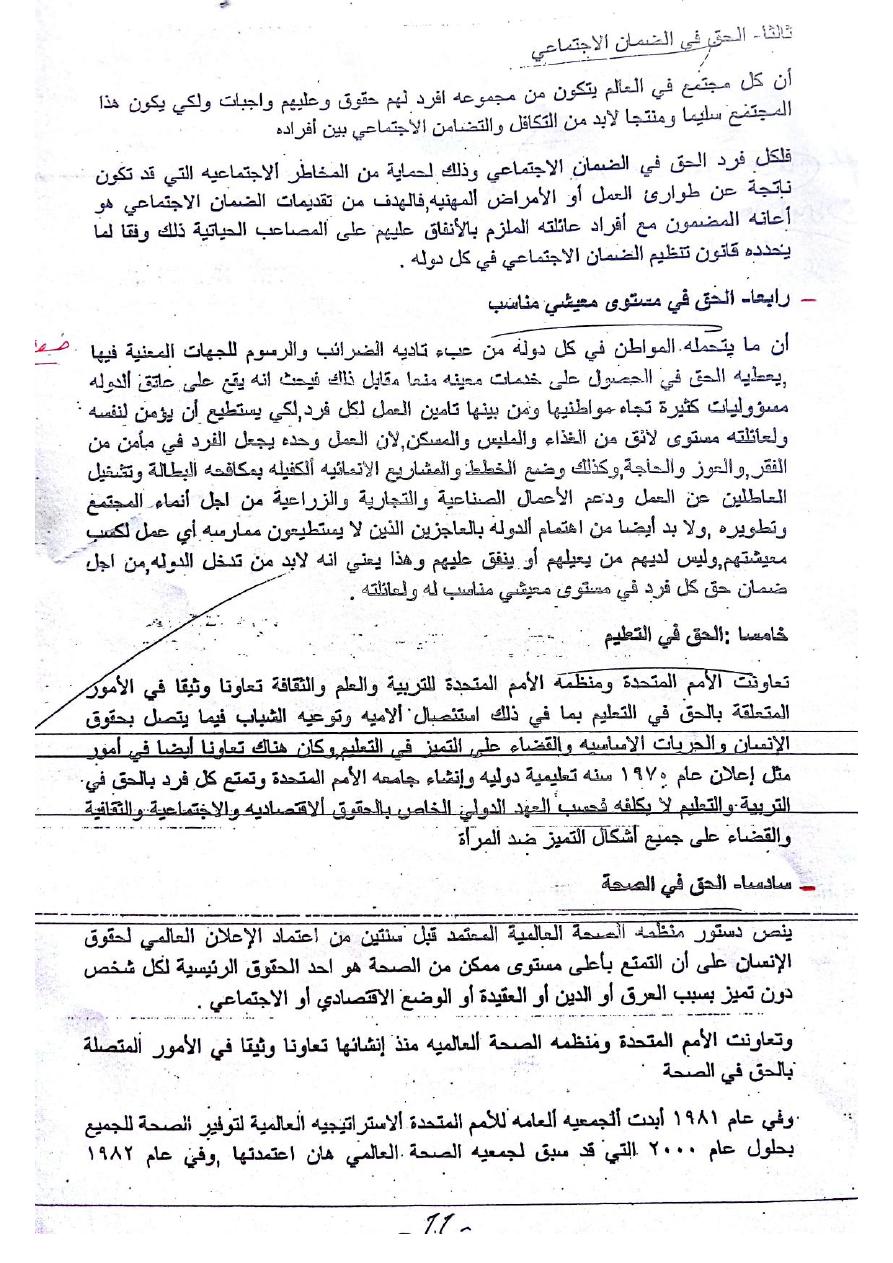 ثالثا- الحق في الضمان الاجتماعي
أن كل مجتمع في العالم يتكون من مجموعه افرد لهم حقوق وعليهم واجبات ولكي يكون هذا
المجتمع سليما ومنتجا لابد من التكافل والتضامن الأجتماعي بين أفراده
فلكل فرد الحق في الضمان الاجتماعي وذلك لحماية من المخاطر ألاجتماعيه التي قد تكون
ناتجة عن طوارئ العمل أو الأمراض المهنيه,فالهدف من تقديمات الضمان الاجتماعي هو
أعانه المضمون مع أفراد عائلته الملزم بالأنفاق عليهم على المصاعب الحياتية ذلك وفقا لما
يحدده قانون تنظيم الضمان الاجتماعي في كل دوله .
رابعا- الحق في مستوى معيشي مناسب
أن ما يتحمله المواطن في كل دوله من عبء تاديه الضرائب والرسوم للجهات المعنية فيها
,يعطيه الحق في الحصول على خدمات معينه منها مقابل ذلك فيحث انه يقع على عاتق ألدوله
مسؤوليات كثيرة تجاه مواطنيها ومن بينها تامين العمل لكل فرد,لكي يستطيع أن يؤمن لنفسه
ولعائلته مستوى لائق من الغذاء والملبس والمسكن,لان العمل وحده يجعل الفرد في مأمن من
الفقر,والعوز والحاجة,وكذلك وضع الخطط والمشاريع الانمائيه ألكفيله بمكافحه البطالة وتشغيل
العاطلين عن العمل ودعم الأعمال الصناعية والتجارية والزراعية من اجل أنماء المجتمع
وتطويره ,ولا بد أيضا من اهتمام ألدوله بالعاجزين الذين لا يستطيعون ممارسه أي عمل لكسب
معيشتهم,وليس لديهم من يعيلهم أو ينفق عليهم وهذا يعني انه لابد من تدخل الدوله,من اجل
ضمان حق كل فرد في مستوى معيشي مناسب له ولعائلته.
خامسا :الحق في التعليم
تعاونت الأمم المتحدة ومنظمه الأمم المتحدة للتربية والعلم والثقافة تعاونا وثيقا في الأمور
المتعلقة بالحق في التعليم بما في ذلك استئصال ألاميه وتوعيه الشباب فيما يتصل بحقوق
الإنسان والحريات الاساسيه والقضاء على التميز في التعليم,وكان هناك تعاونا أيضا في أمور
مثل إعلان عام ١٩٧٠ سنه تعليمية دوليه وإنشاء جامعه الأمم المتحدة وتمتع كل فرد بالحق في
التربية والتعليم لا يكلفه فحسب العهد الدولي الخاص بالحقوق ألاقتصاديه والاجتماعية والثقافية
والقضاء على جميع أشكال التميز ضد المرأة
سادسا- الحق في الصحة
ينص دستور منظمه الصحة العالمية المعتمد قبل سنتين من اعتماد الإعلان العالمي لحقوق
الإنسان على أن التمتع بأعلى مستوى ممكن من الصحة هو احد الحقوق الرئيسية لكل شخص
دون تميز بسبب العرق أو الدين أو العقيدة أو الوضع الاقتصادي أو الاجتماعي .
وتعاونت الأمم المتحدة ومنظمه الصحة ألعالميه منذ إنشائها تعاونا وثيقا في الأمور المتصلة
بالحق في الصحة
وفي عام ١٩٨١ أبدت ألجمعيه ألعامه للأمم المتحدة ألاستراتيجيه العالمية لتوفير الصحة للجميع
بحلول عام ٢٠٠٠ التي قد سبق لجمعيه الصحة العالمي هان اعتمدتها ,وفي عام ١٩٨٢